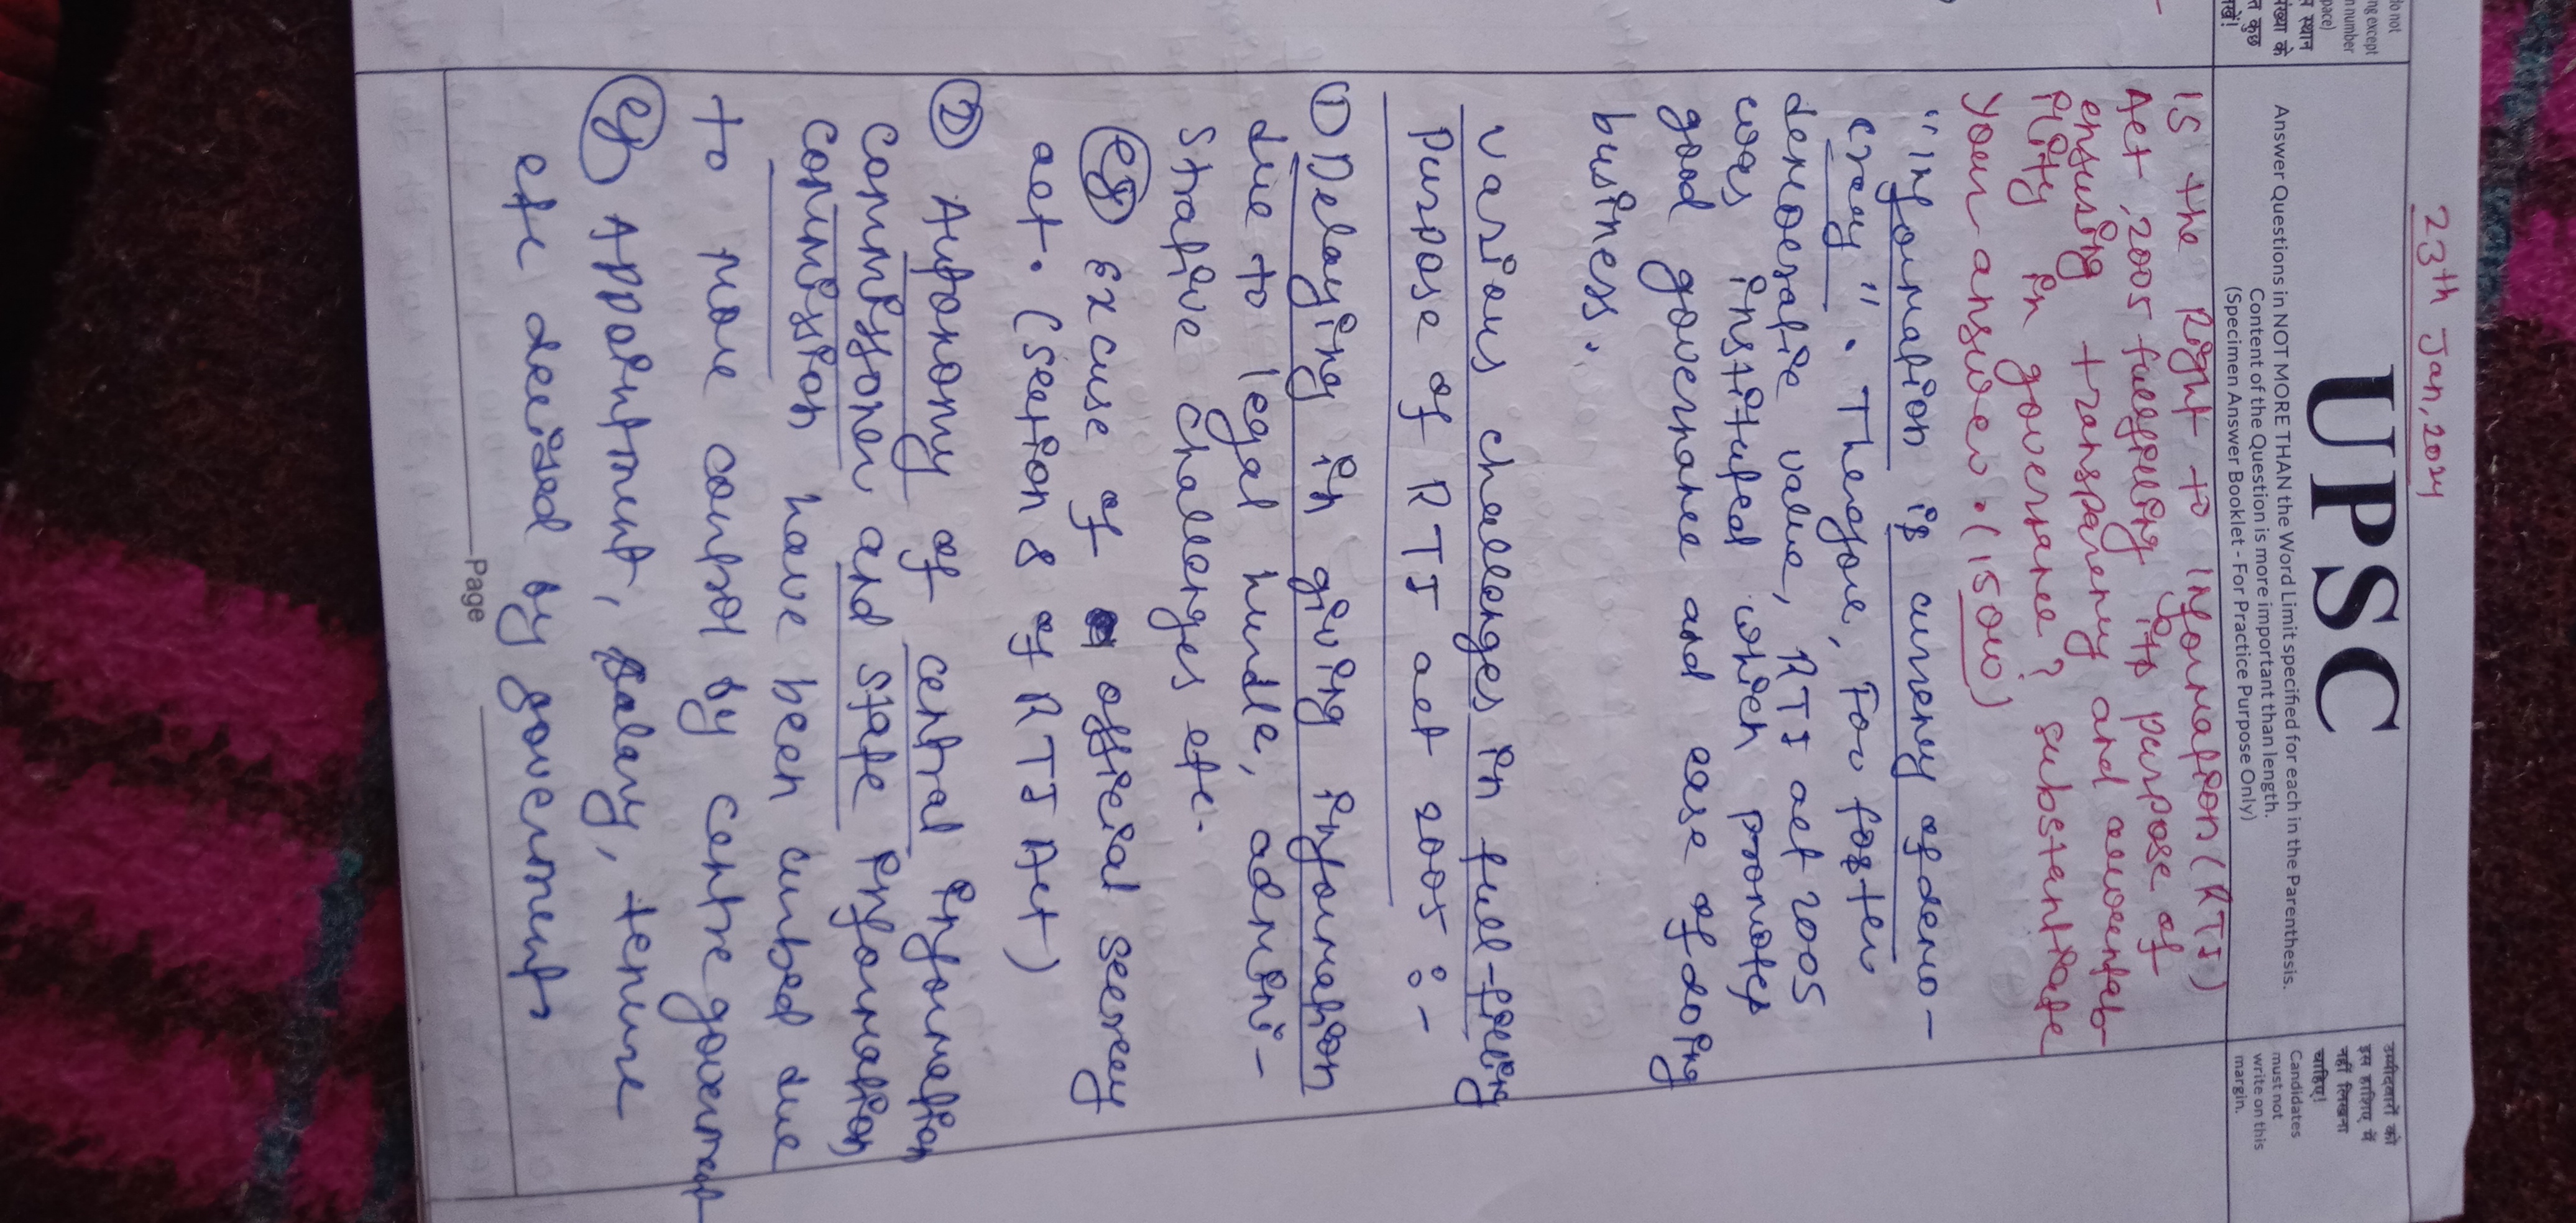 23th Jan, 2024
do not
ng except
n number
pace)
स स्थान
संख्या के
त कुछ
UPSC
Answer Questions in NOT MORE THAN the Word Limit specified for each in the Parenthesis.
Content of the Question is more important than length.
(Specimen Answer Booklet - For Practice Purpose Only)
उम्मीदवारों को
इस हाशिए में
नहीं लिखना
चाहिए!
Candidates
must not
write on this
margin.
Is the Right to Information (RTI)
Act, 2005 fullfilling its purpose of
ensuring transparency and accountab
ility in governance? substantiate
your answer. (150w)
"Information is currency of demo-
cracy". Therefore, For foster
democratic value, RTI act 2005
was instituted which promotes
good governance and ease of doing
business.
Various challenges in full-filling
Purpose of RTI act 2005 :-
① Delaying in giving information
due to legal hurdle, admini-
strative challenges etc.
eg Excuse of official secrecy
act. (section 8 of RTI Act)
② Autonomy of central information
commissioner and state information
commission have been curbed due
to more control by centre government
eg Appointment, salary, tenure
etc decised by governments
Page